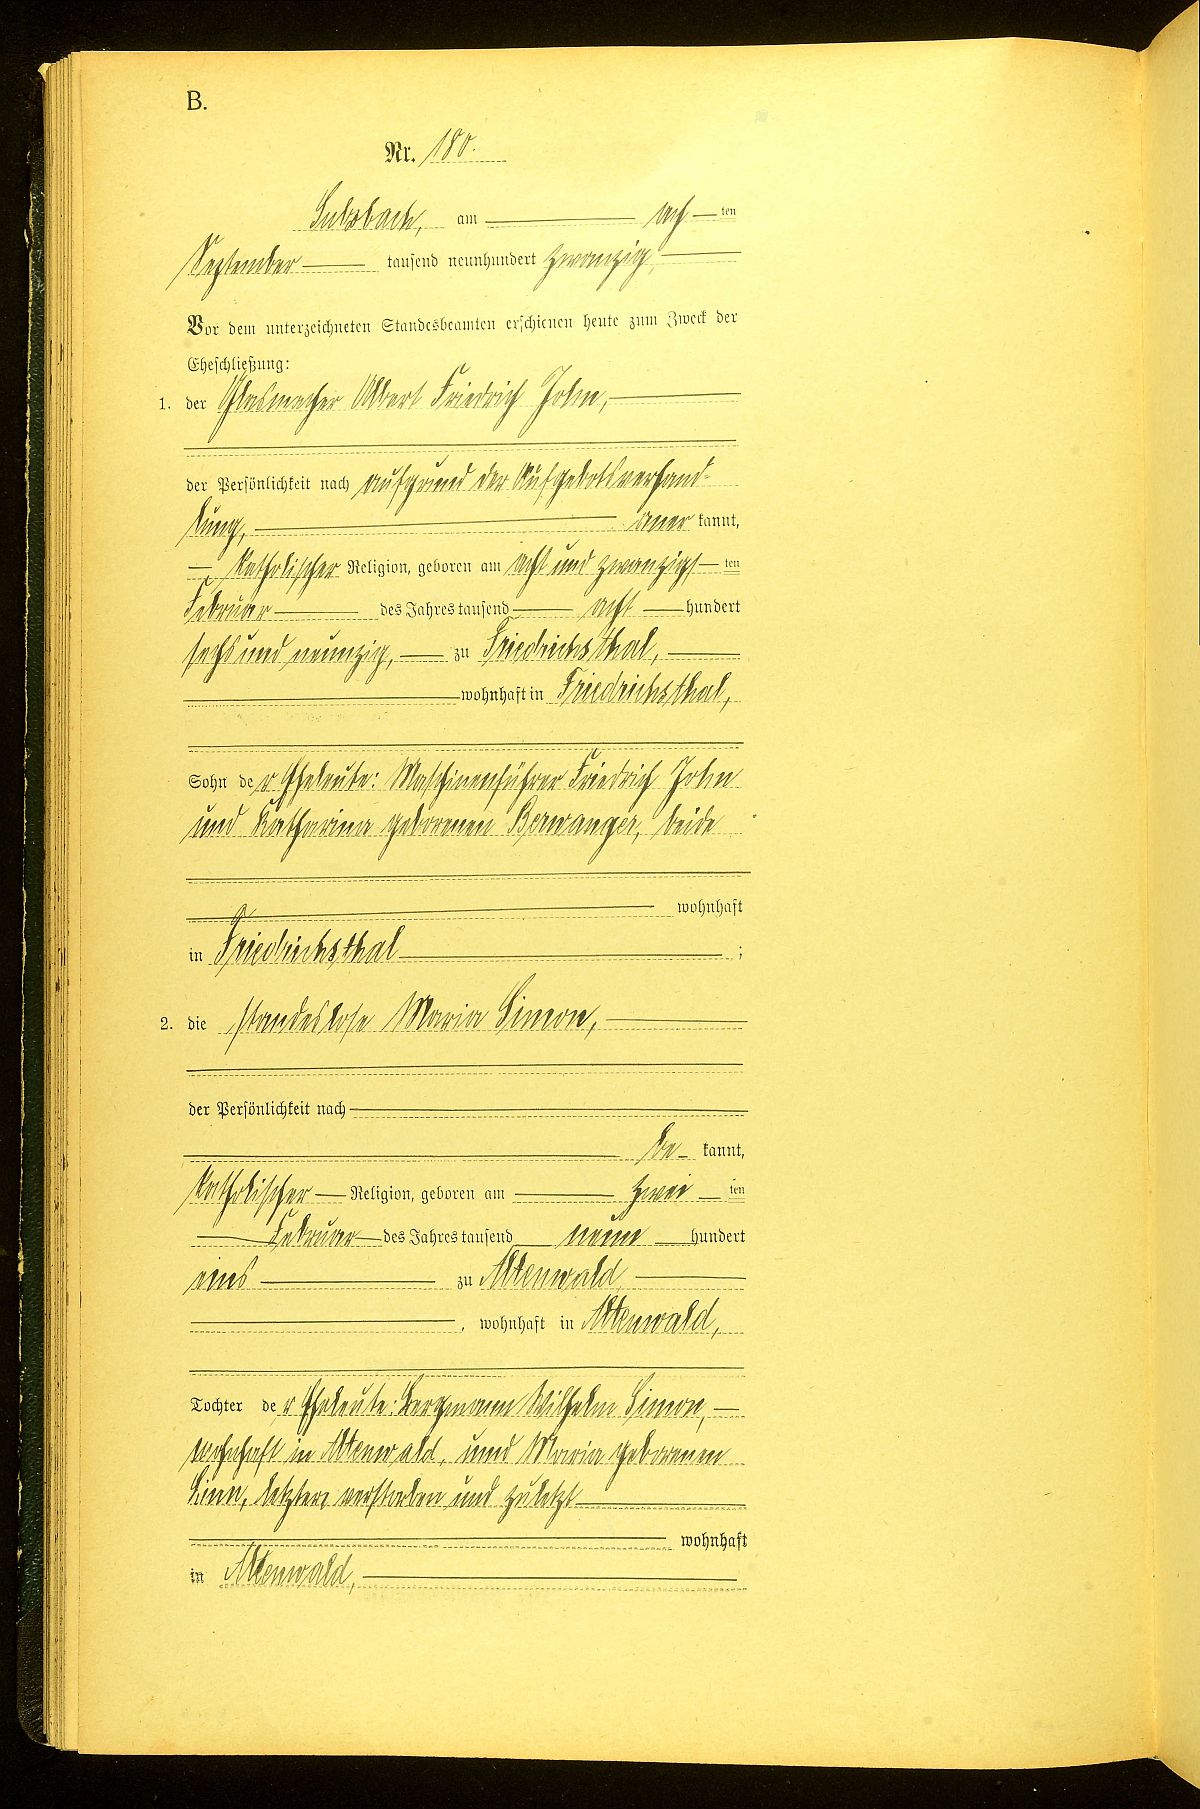 B.
Nr. 180.
Sulzbach, am ach ten
September tausend neunhundert zwanzig,
Vor dem unterzeichneten Standesbeamten erschienen heute zum Zweck der
Eheschließung:
1. der Glasmacher Albert Friedrich John,
der Persönlichkeit nach aufgrund der Aufgebotsverhand-
lung, aner kannt,
katholischer Religion, geboren am acht und zwanzigs ten
Februar des Jahres tausend acht hundert
sechs und neunzig, zu Friedrichsthal,
wohnhaft in Friedrichsthal,
Sohn de r Eheleute: Maschinenführer Friedrich John
und Katharina geborenen Berwanger, beide
wohnhaft
in Friedrichsthal ;
2. die standeslose Maria Simon,
der Persönlichkeit nach
be kannt,
katholischer Religion, geboren am zwei ten
Februar des Jahres tausend neun hundert
eins zu Altenwald
, wohnhaft in Altenwald,
Tochter de r Eheleute: Bergmann Wilhelm Simon,
wohnhaft in Altenwald, und Maria geborenen
letztere verstorben und zuletzt
wohnhaft
in Altenwald,